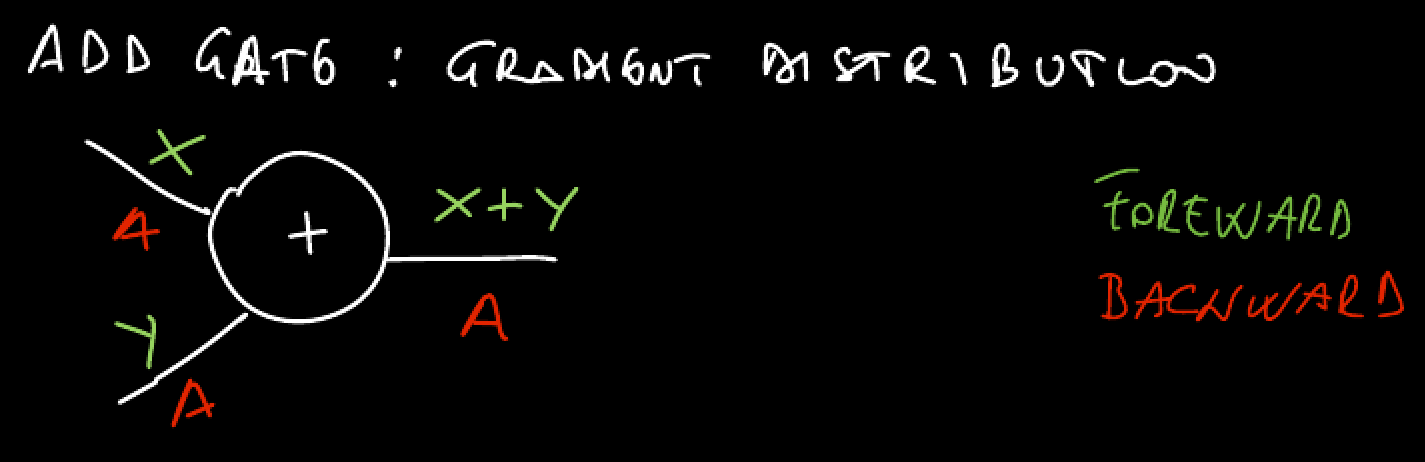 ADD GATE : GRADIENT DISTRIBUTION
X
A
+
X+Y
A
Y
A
FOREWARD
BACKWARD